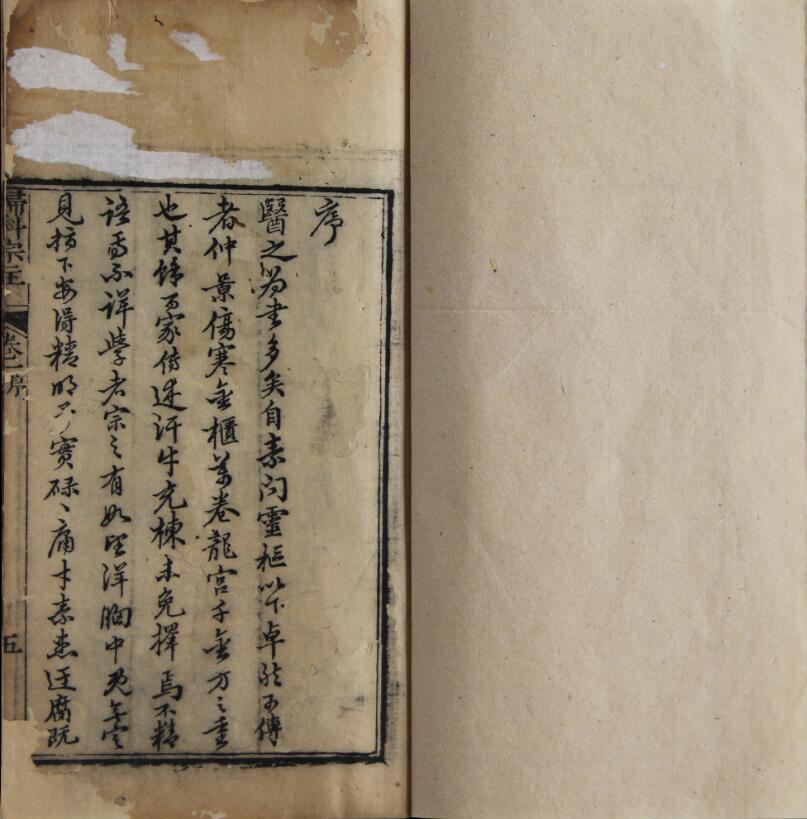 序
醫之為書多矣自素问靈樞以下卓然可傳
者仲景傷寒金櫃萬卷龍宮千金方之重
也其餘百家傳述汗牛充棟未免擇焉不精
語焉不詳學者宗之有如望洋胸中無定
見指下安得精明實碌〻庸才素患迂腐既
婦科宗主
卷一序
五